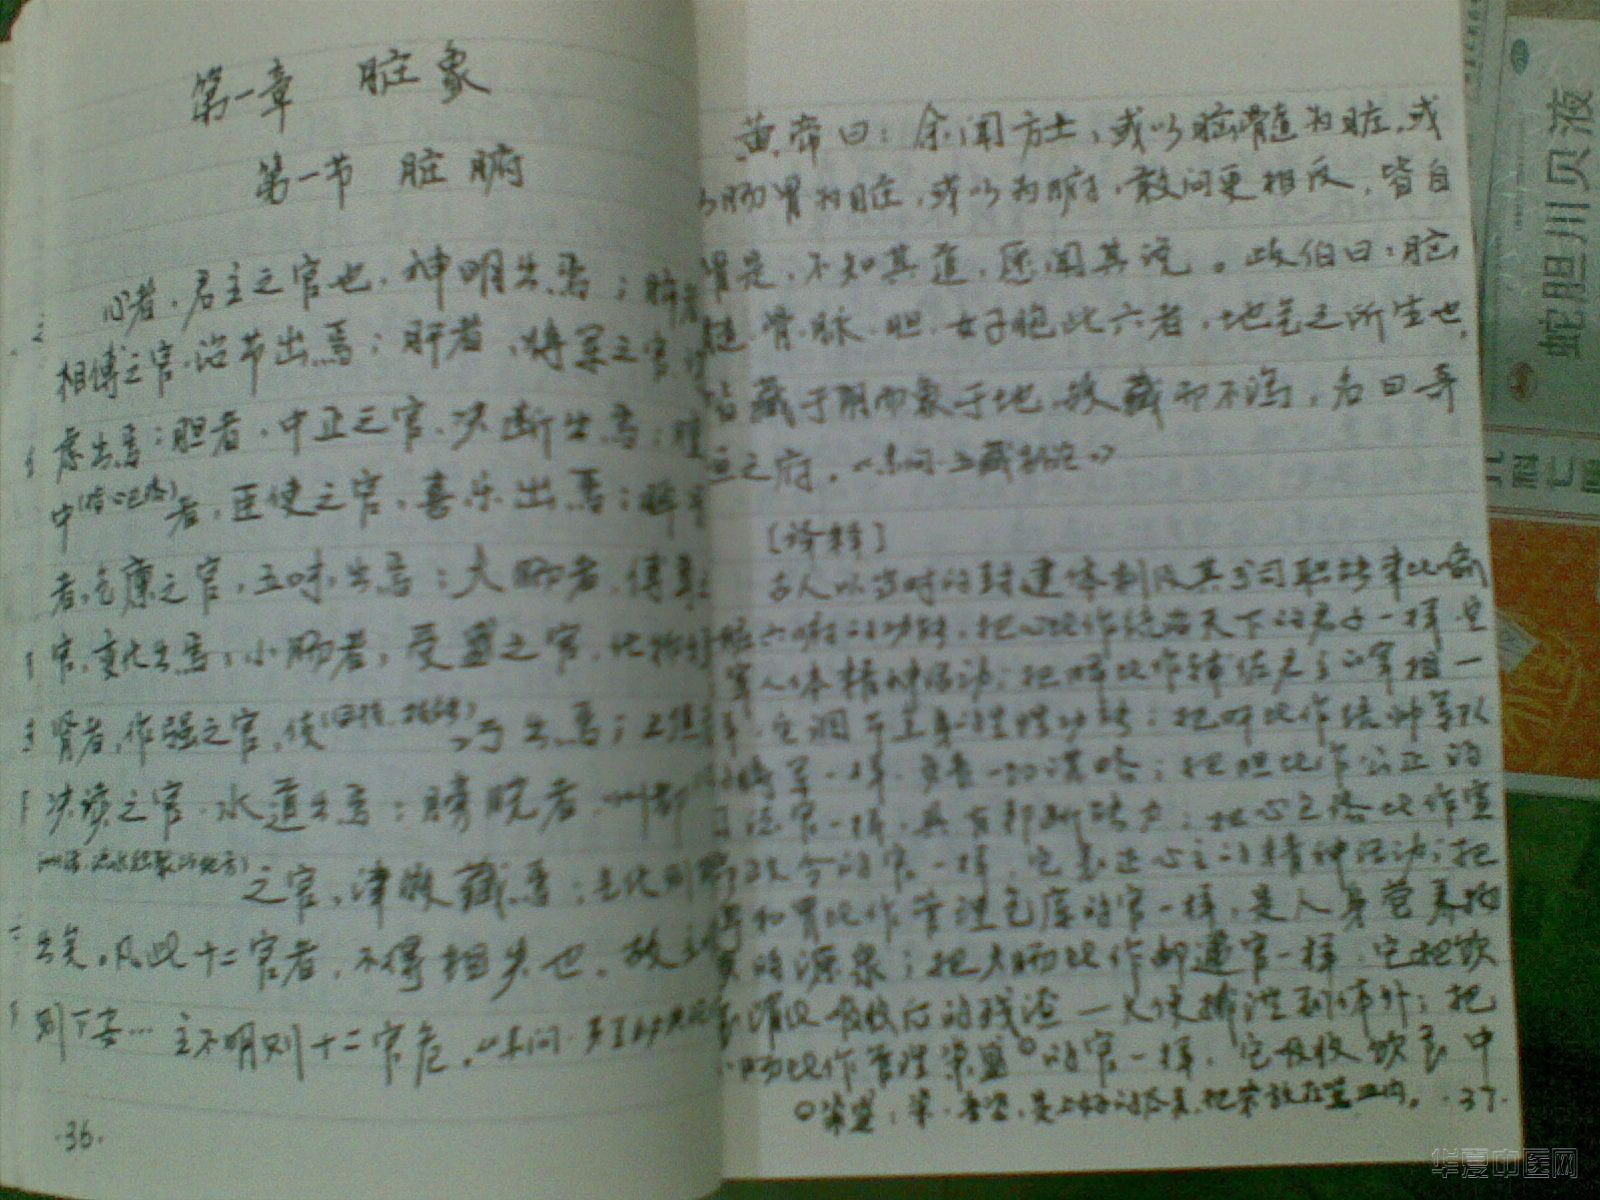 第一章 脏象
第一节 脏腑
心者,君主之官也,神明出焉;肺者
相傅之官,治节出焉;肝者,将军之官,
虑出焉;胆者,中正之官,决断出焉;膻
中 者,臣使之官,喜乐出焉;脾胃
者,仓廪之官,五味出焉;大肠者,传导
官,变化出焉;小肠者,受盛之官,化物
肾者,作强之官,伎 巧出焉;三焦
决渎之官,水道出焉;膀胱者,州都
之官,津液藏焉;气化则
出矣。凡此十二官者,不得相失也。故主
则下安…主不明则十二官危。
·36·
黄帝曰:余闻方士,或以脑髓为脏,或
以肠胃为脏,或以为腑,敢问更相反,皆自
谓是,不知其道,愿闻其说。岐伯曰:脑
髓、骨、脉、胆、女子胞此六者,地气之所生也,
皆藏于阴而象于地,故藏而不泻,名曰奇
恒之府。《素问·五藏别论》
[译释]
古人以当时的封建体制及其官司职能来比喻
脏六腑的功能,把心比作统治天下的君主一样,主
宰人体精神活动;把肺比作辅佐君主的宰相一
样,它调节全身 功能;把肝比作统帅军队
将军一样,负责一切谋略;把胆比作公正的
法官一样,具有判断能力;把心包络比作宣
政令的官一样,它表达心主的精神活动;把
脾和胃比作管理仓库的官一样,是人身营养物
质的源泉;把大肠比作邮递官一样,它把饮
食消化吸收后的残渣—大便排泄到体外;把
小肠比作管理粢盛①的官一样,它吸收饮食中
①粢盛:粢, 是上好的谷
·37·
蛇胆川贝液
华夏中医网